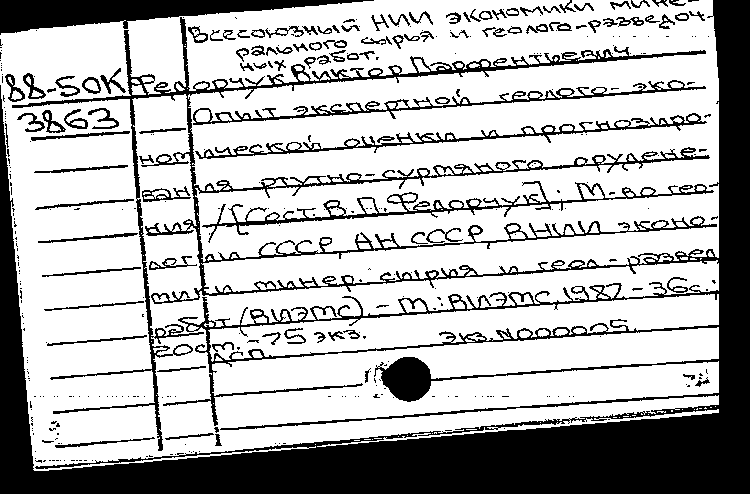 Всесоюзный НИИ экономики мине-
рального сырья и геолого-разведоч-
ных работ.
88-50К Федорчук, Виктор Парфентьевич
3863 Опыт экспертной геолого-эко-
номической оценки и прогнозиро-
вания ртутно-сурмяного орудене-
ния / [Сост. В.П. Федорчук]; М-во гео-
логии СССР, АН СССР, ВНИИ эконо-
мики минер. сырия и геол-развед
работ (ВИЭМС). - М.: ВИЭМС, 1987. - 36с.;
20см. - 75 экз. экз. N000005.
Дсп.